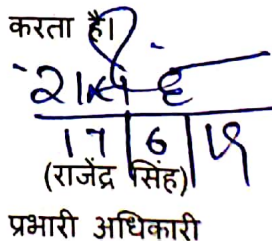 करता है।
17/6/
(राजेंद्र सिंह)
प्रभारी अधिकारी